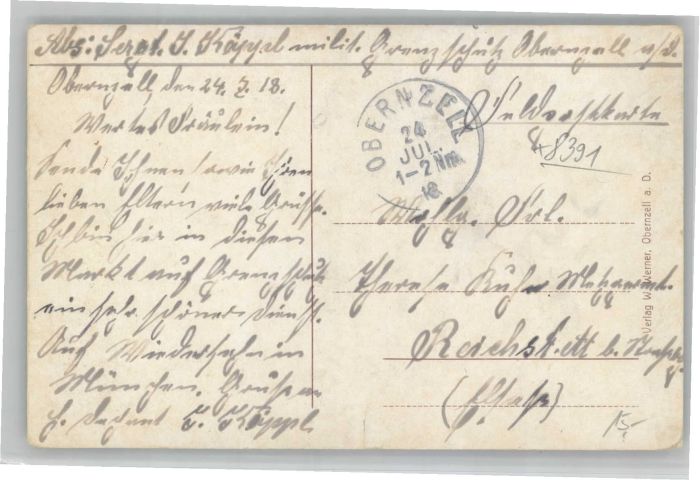 Abs: Sergt. J. Köppl milit. Grenzschutz Obernzell a/D.
Obernzell, den 24. 7. 18.
Wertes Fräulein!
Sende Ihnen sowie Ihren
lieben Eltern viele Grüsse.
Ich bin hier in diesen
Markt auf Grenzschutz
ein sehr schöner Dienst.
Auf Wiedersehn in
München. Gruss an
H. Dechant J. Köppl
OBERNZELL
24
JUL.
1-2 Nm.
18
Feldpostkarte
48391
Frl.
Therese Kuhn
Reichstett b. Straßb.
(Elsaß)
Verlag W. Werner, Obernzell a. D.
15,-